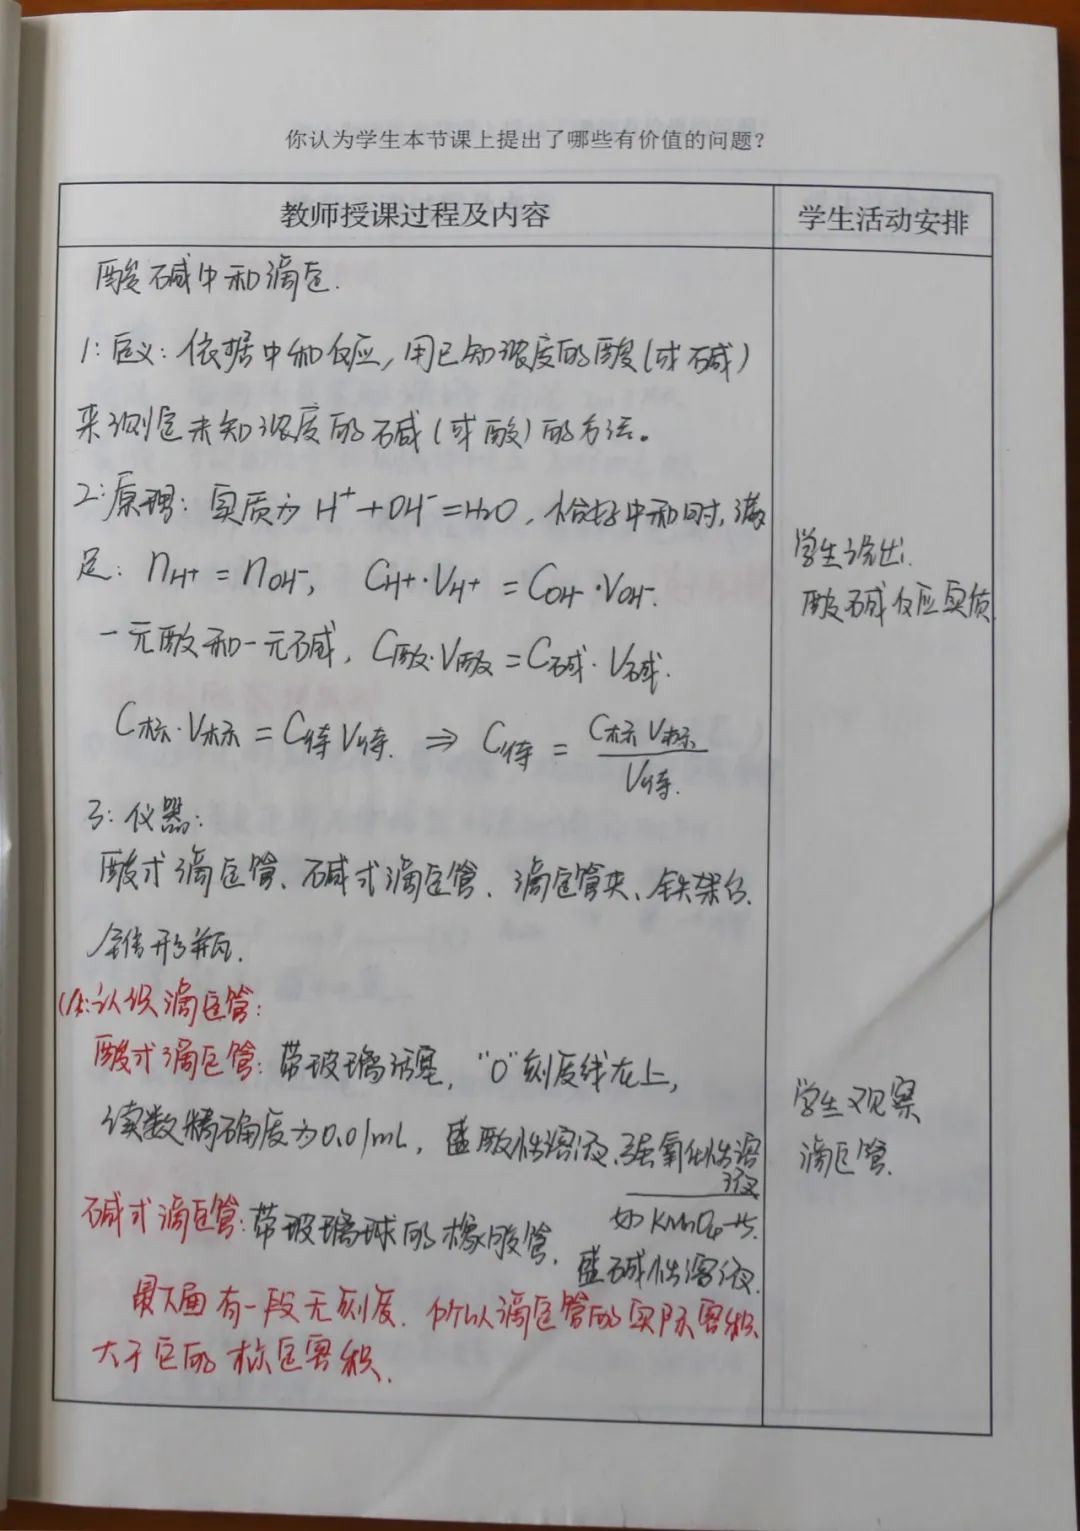 你认为学生本节课上提出了哪些有价值的问题？
教师授课过程及内容
学生活动安排
酸碱中和滴定.
1: 定义: 依据中和反应, 用已知浓度的酸(或碱)
来测定未知浓度的碱(或酸)的方法。
2: 原理: 实质为 H⁺+OH⁻=H₂O, 恰好中和时, 满
足: n_H⁺ = n_OH⁻, C_H⁺·V_H⁺ = C_OH⁻·V_OH⁻.
一元酸和一元碱, C酸·V酸 = C碱·V碱.
C标·V标 = C待V待. ⇒ C待 = C标V标/V待.
3: 仪器:
酸式滴定管、碱式滴定管、滴定管夹、铁架台.
锥形瓶.
认识滴定管:
酸式滴定管: 带玻璃活塞, “0”刻度线在上,
读数精确度为0.01mL, 盛酸性溶液、强氧化性溶
液
如KMnO₄
碱式滴定管: 带玻璃球的橡胶管.
盛碱性溶液.
最下面有一段无刻度. 所以滴定管的实际容积
大于它的标定容积.
学生说出:
酸碱反应实质
学生观察
滴定管.